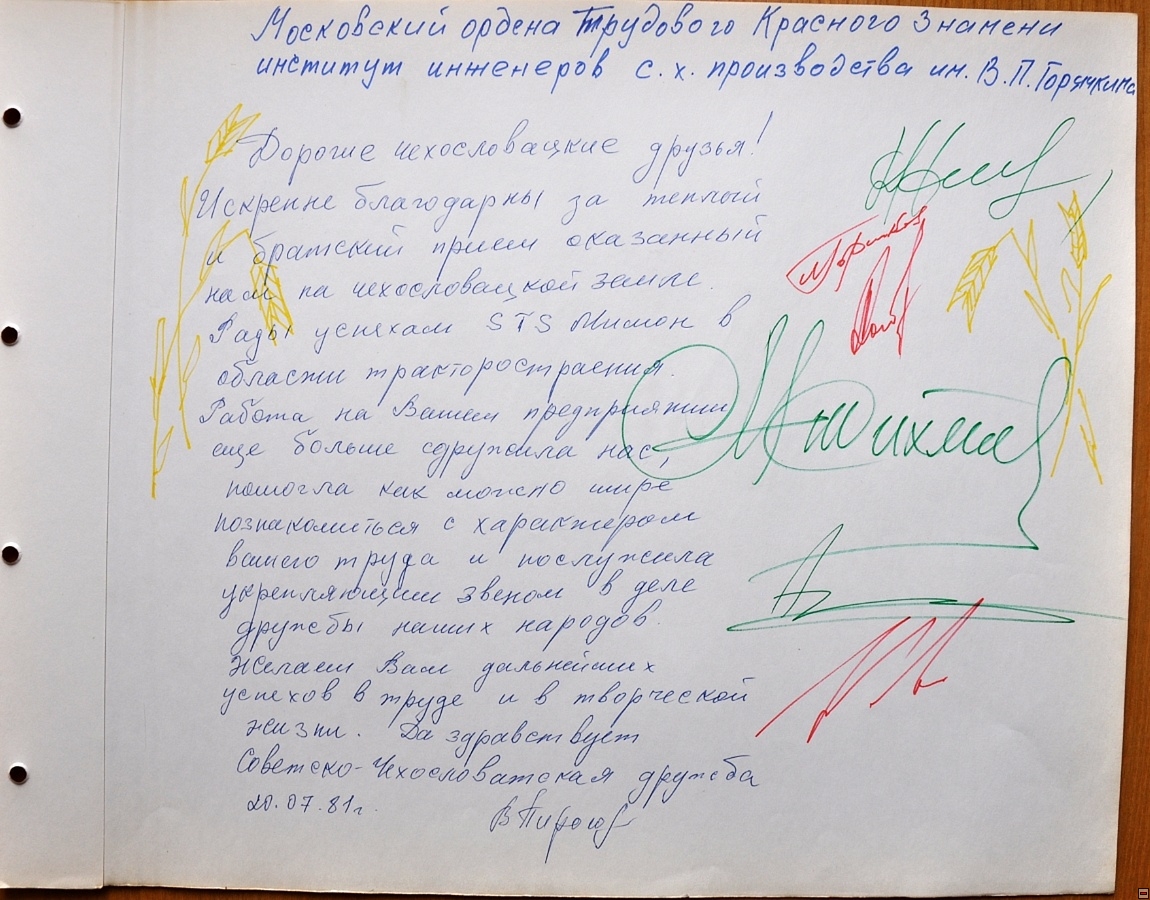 Московский ордена Трудового Красного Знамени
институт инженеров с. х. производства им. В. П. Горячкина
Дорогие чехословацкие друзья!
Искренне благодарны за теплый
и братский прием оказанный
нам на чехословацкой земле.
Рады успехам STS Мимон в
области тракторостраения.
Работа на Вашем предприятии
еще больше сдружила нас,
помогла как можно шире
познакомиться с характером
вашего труда и послужила
укрепляющим звеном в деле
дружбы наших народов.
Желаем Вам дальнейших
успехов в труде и в творческой
жизни. Да здравствует
Советско-Чехословатская дружба
20.07.81г.